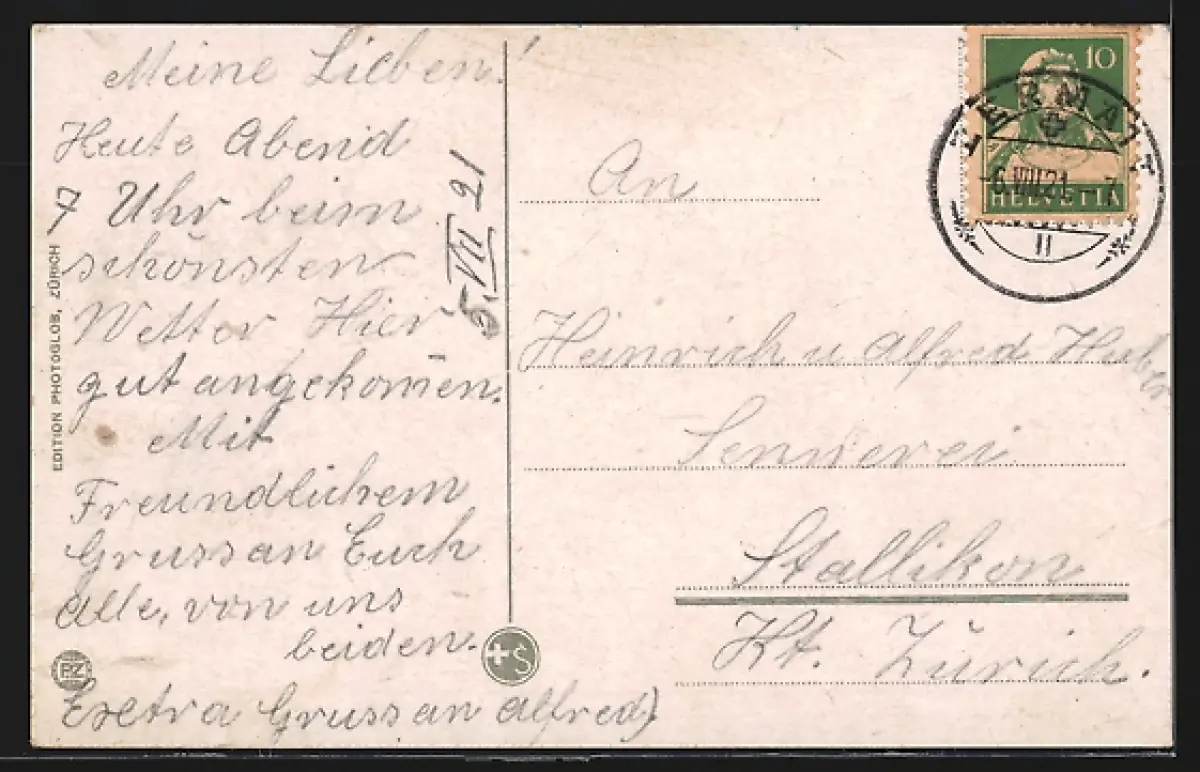 Meine Lieben!
Heute Abend
7 Uhr beim
schönsten
Wetter Hier
gut angekom̄en.
Mit
Freundlichem
Gruss an Euch
Alle, von uns
beiden.
Exetra Gruss an Alfred)
5. VII 21
EDITION PHOTOGLOB, ZÜRICH
PZ
+S
10
HELVETIA
ZERMATT
-6.VIII.21-7
II
An
Heinrich u Alfred Huber
Sennerei
Stallikon
Kt. Zürich.